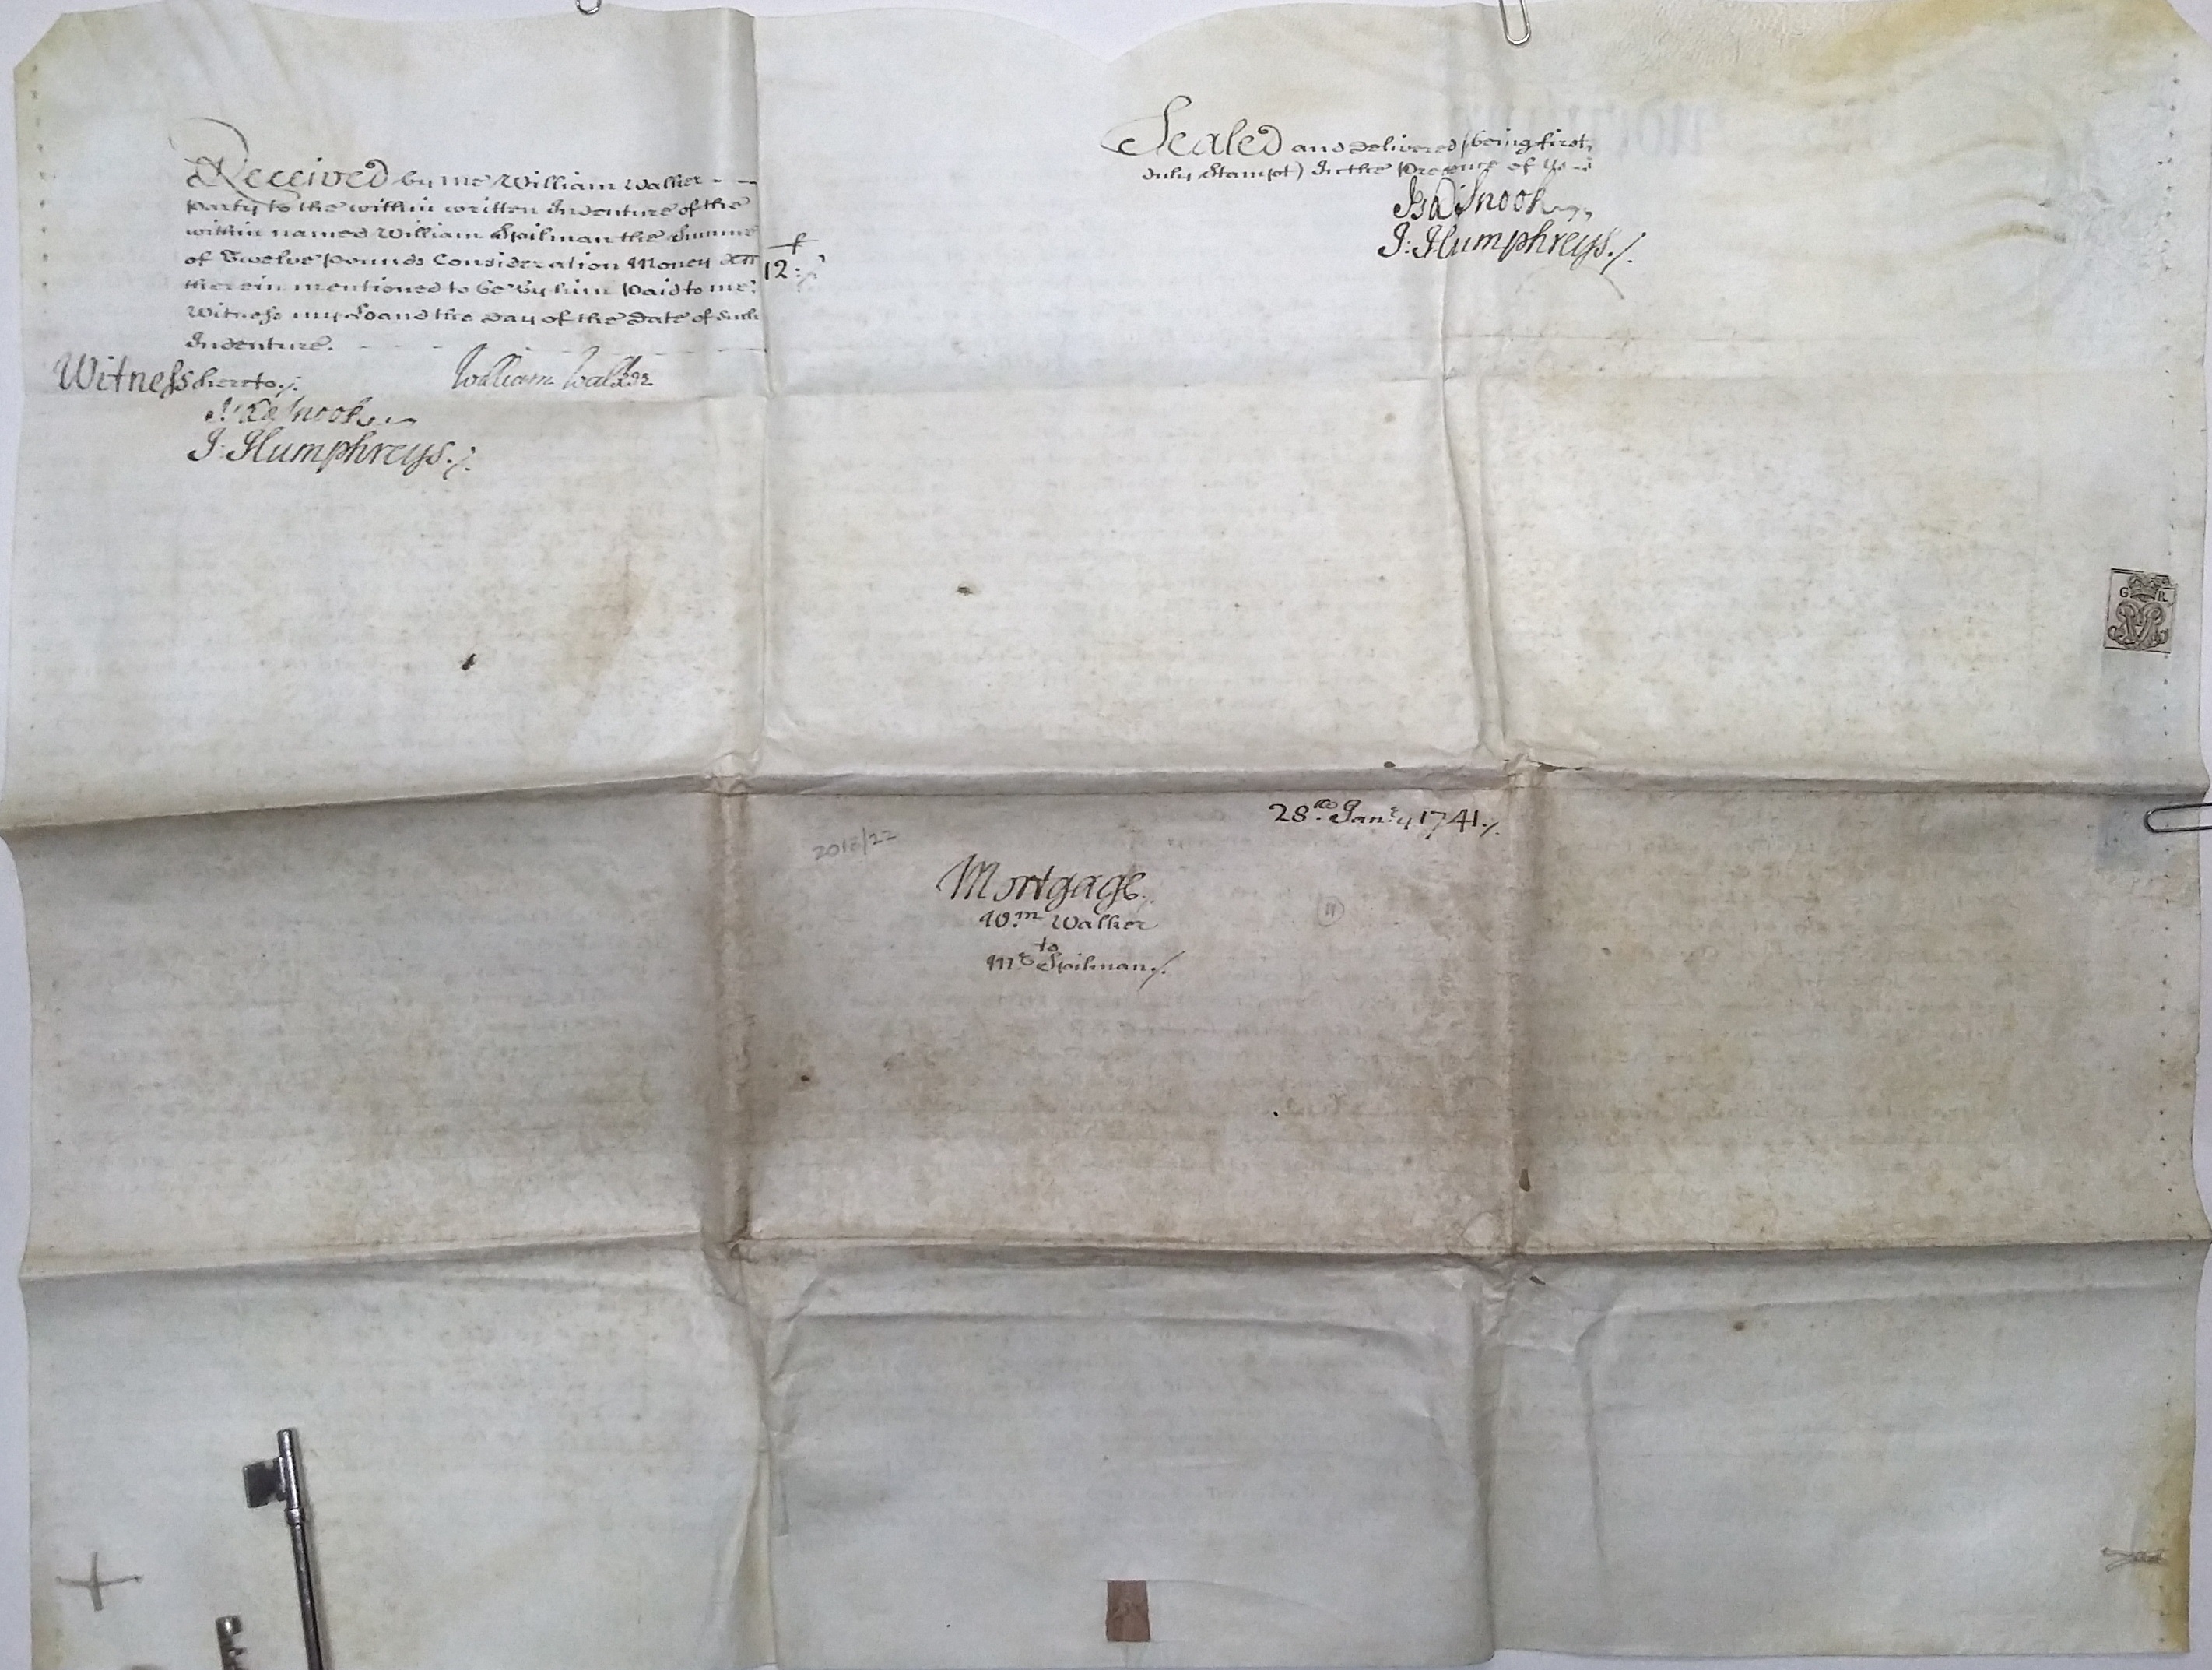 Received by me William Walker - -
party to the within written Indenture of the
within named William Spilman the Summe
of Twelve pounds Consideration Money
therein mentioned to be by him paid to me:
Witness my hand the day of the date of such
Indenture.
£
12:
Witness hereto./.
William Walker
Snook
J: Humphreys./.
Sealed and delivered (being first
duly stampt) In the presence of us
Isa Snook
J: Humphreys./.
G R
28th. Janry 1741./.
2018/22
Mortgage.
Wm. Walker
to
Mr. Spilman./.
11